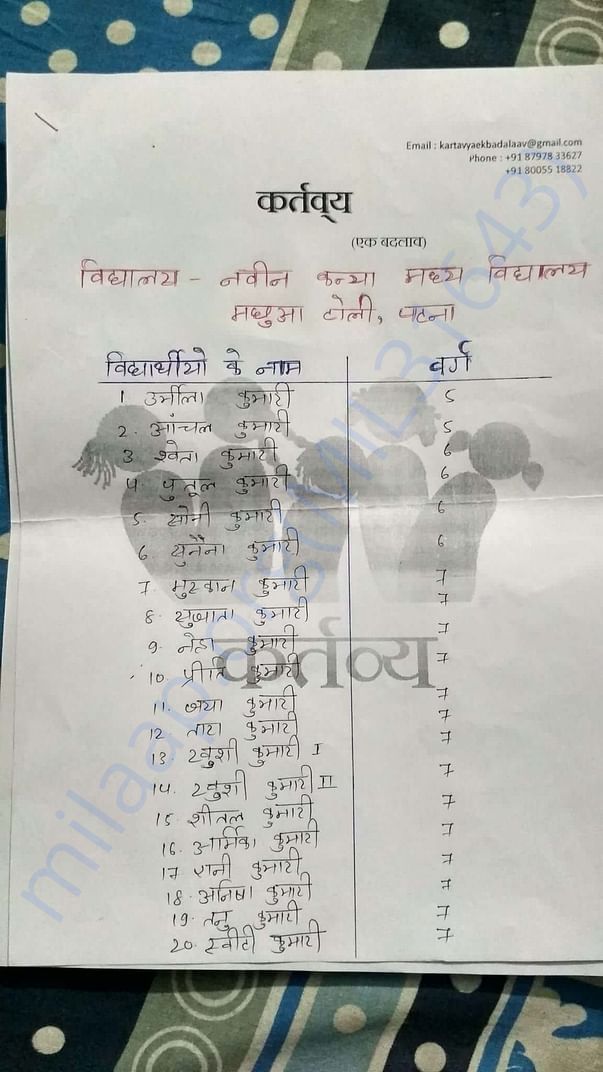 Email : kartavyaekbadalaav@gmail.com
Phone : +91 87978 33627
+91 80055 18822
कर्तव्य
(एक बदलाव)
विद्यालय - नवीन कन्या मध्य विद्यालय
मछुआ टोली, पटना
विद्यार्थीयो के नाम वर्ग
1. उर्मीला कुमारी 5
2. आंचल कुमारी 5
3. श्वेता कुमारी 6
4. पुतूल कुमारी 6
5. सोनी कुमारी 6
6. सुनैना कुमारी 6
7. मुस्कान कुमारी 7
8. सुजाता कुमारी 7
9. नेहा कुमारी 7
10. प्रीति कुमारी 7
11. जया कुमारी 7
12. तारा कुमारी 7
13. खुशी कुमारी I 7
14. खुशी कुमारी II 7
15. शीतल कुमारी 7
16. आर्मिका कुमारी 7
17. रानी कुमारी 7
18. अनिषा कुमारी 7
19. तनु कुमारी 7
20. स्वीटी कुमारी 7
कर्तव्य